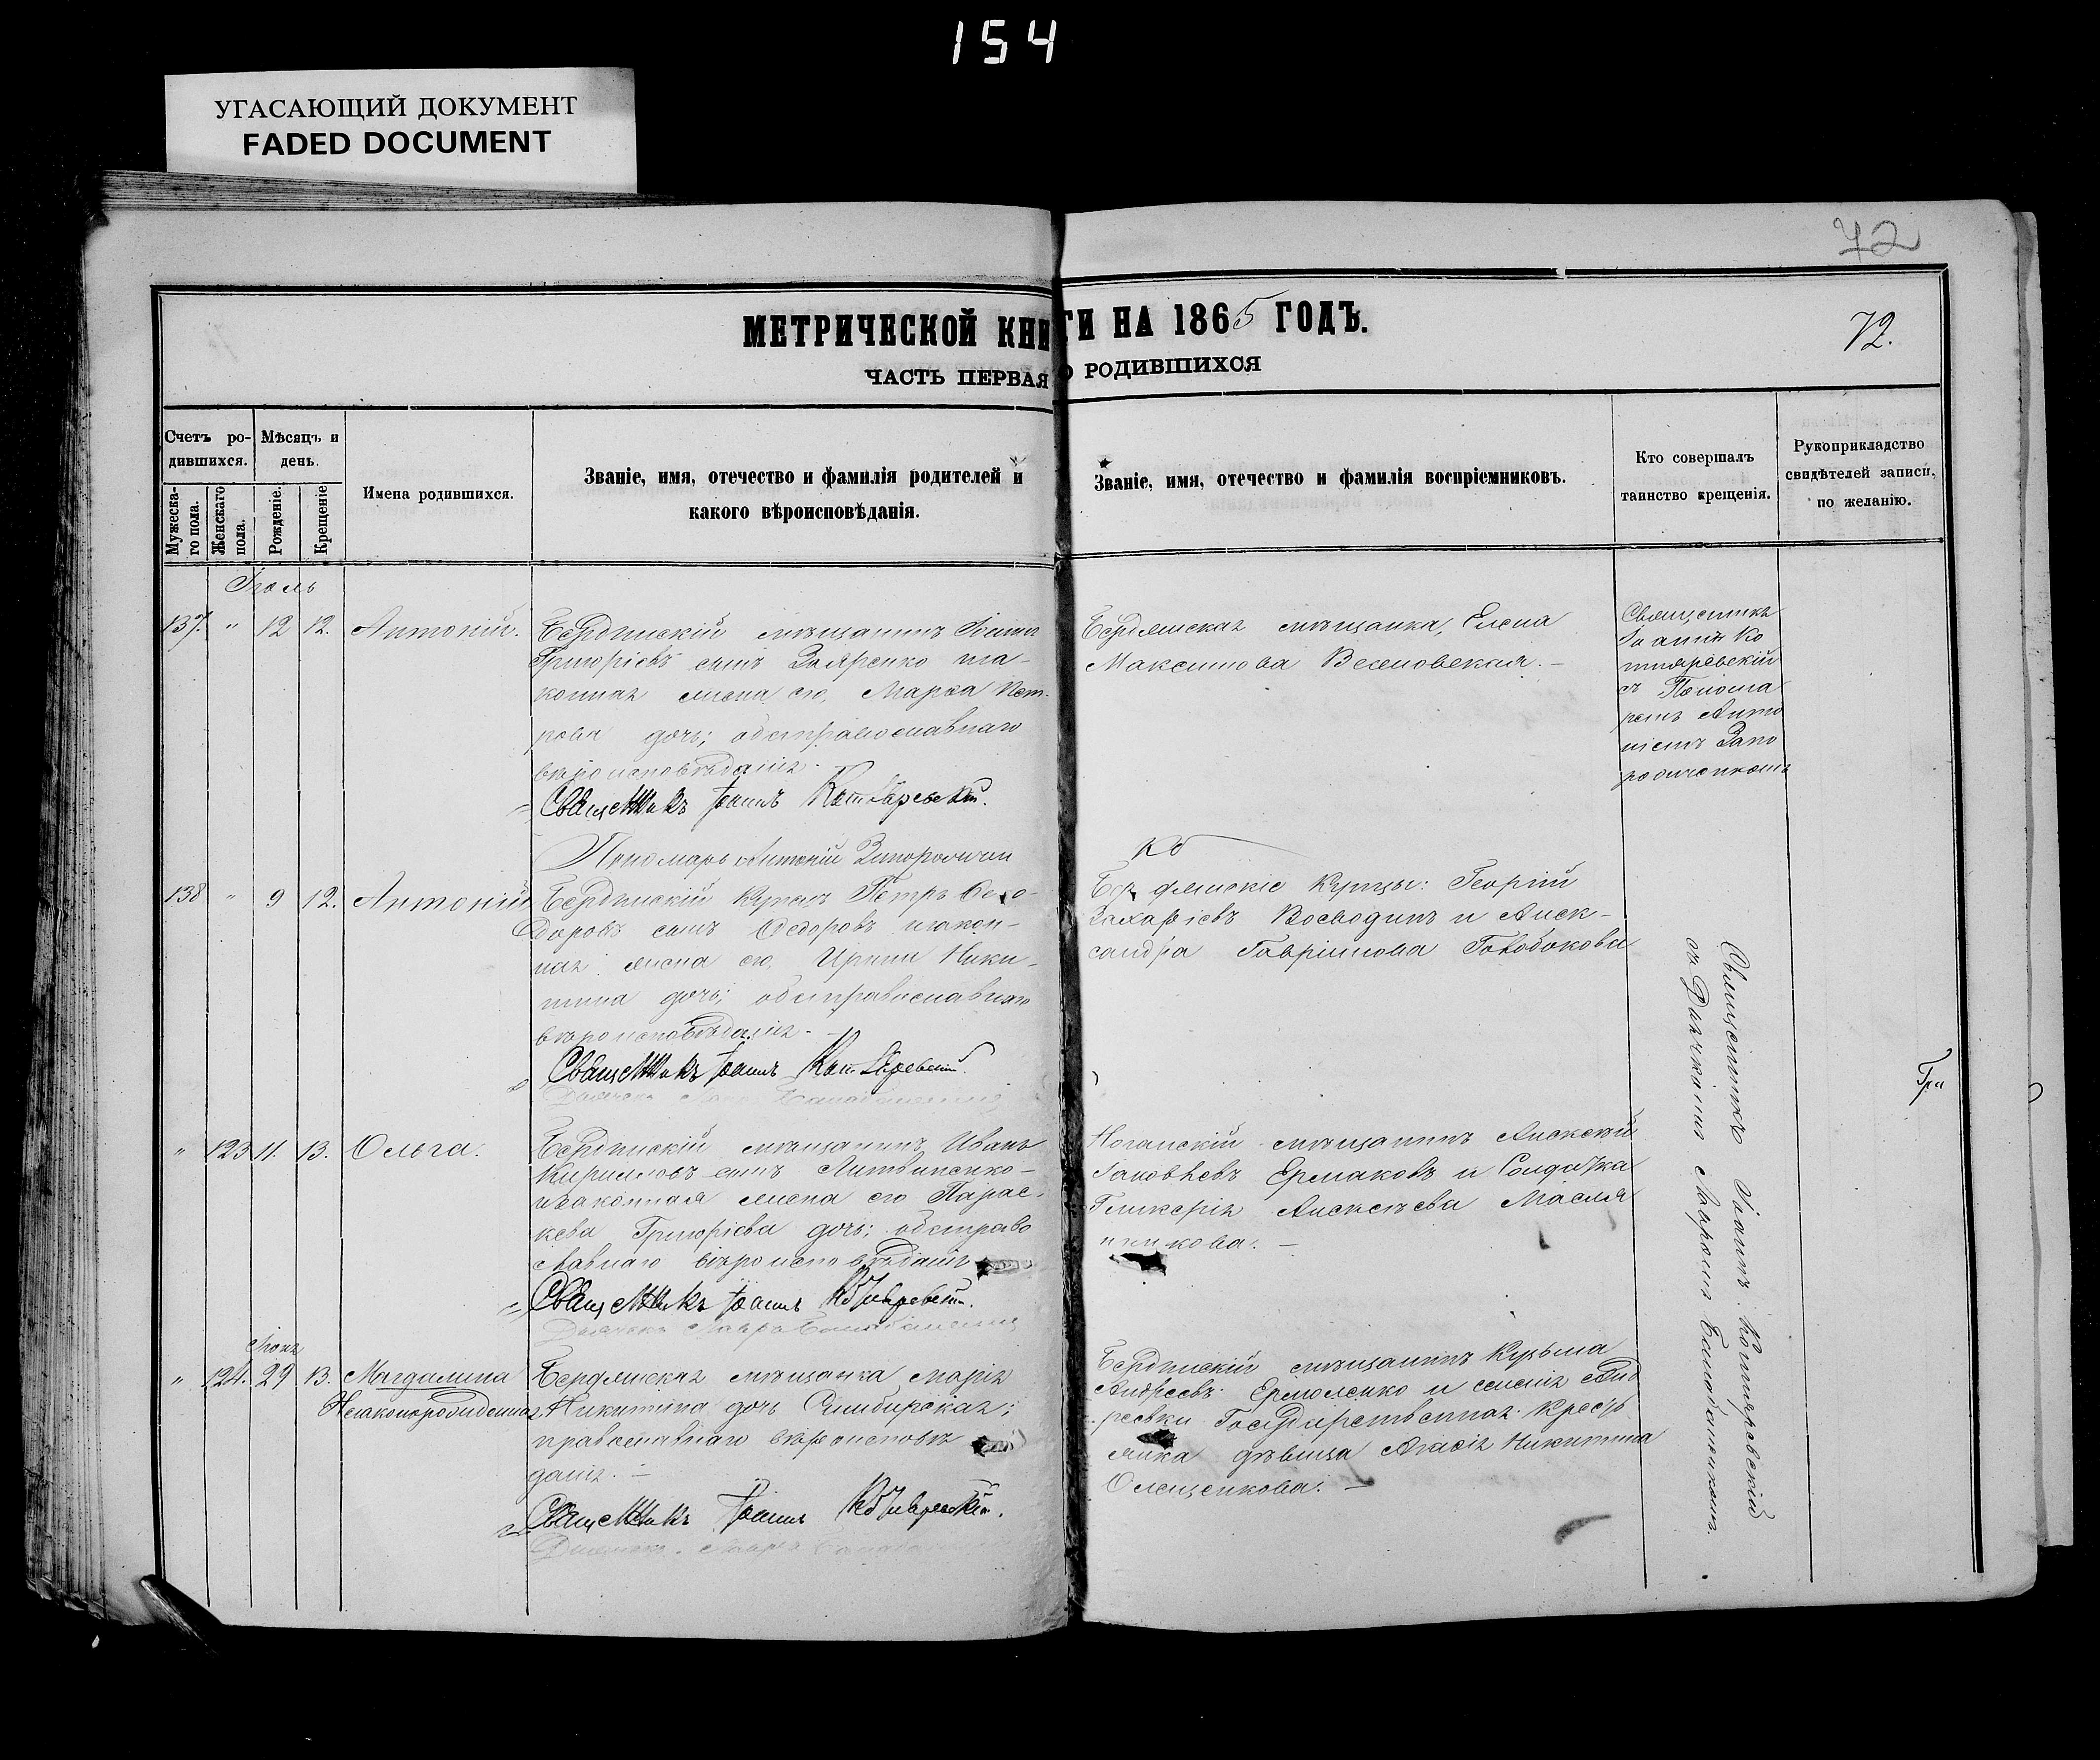 154
УГАСАЮЩИЙ ДОКУМЕНТ
FADED DOCUMENT
72
МЕТРИЧЕСКОЙ КНИГИ НА 1865 ГОДЪ.
72.
ЧАСТЬ ПЕРВАЯ О РОДИВШИХСЯ
Счетъ ро-
дившихся.
Мужеска-
го пола.
Женскаго
пола.
Мѣсяцъ и
день.
Рожденіе.
Крещеніе
Имена родившихся.
Званіе, имя, отечество и фамилія родителей и
какого вѣроисповѣданія.
Званіе, имя, отечество и фамилія воспріемниковъ.
Кто совершалъ
таинство крещенія.
Рукоприкладство
свидѣтелей записи,
по желанію.
Іюль
137. " 12 12. Антоній.
Бердянскій мѣщанинъ
Григорієвъ сынъ за-
конная жена его, Марѳа Пет-
рова дочь; оба православнаго
вѣроисповѣданія.
Священникъ Іоаннъ Котляревскій.
Пономарь Антоній
Бердянская мѣщанка, Елена
Максимова
Священникъ
Іоаннъ Ко
тляревскій
съ Понома
ремъ Анто
ніемъ Запо
138 " 9 12. Антоній
Бердянскій Купецъ Петръ Ѳео-
доровъ сынъ Ѳедоровъ и закон-
ная жена его, Ирина Ники-
тина дочь; оба православнаго
вѣроисповѣданія.
Священникъ Іоаннъ Котляревскій.
Бердянскіе Купцы: Георгій
Захарієвъ и Алек-
сандра Гавріилова
" 123 11. 13. Ольга.
Бердянскій мѣщанинъ Иванъ
Кириловъ сынъ Литвиненко
и законная жена его Парас-
кева Григорієва дочь; оба право
славнаго вѣроисповѣданія
Священникъ Іоаннъ Котляревскій.
Ногайскій мѣщанинъ Алексѣй
Яковлевъ Ермаковъ и Солдатка
Гликерія Алексѣева Масля
никова. —
Іюнь
" 124. 29 13. Магдалина
Незаконорожденная
Бердянская мѣщанка Марія
Никитина дочь Симбирская;
православнаго вѣроисповѣ
данія. —
Священникъ Іоаннъ Котляревскій.
Бердянскій мѣщанинъ Кузьма
Андреевъ Ермоленко и
Государственная Кресть
янка дѣвица Никитина
Олещенкова. —
Священникъ Іоаннъ Котляревскій
съ Дьячкомъ
Гри